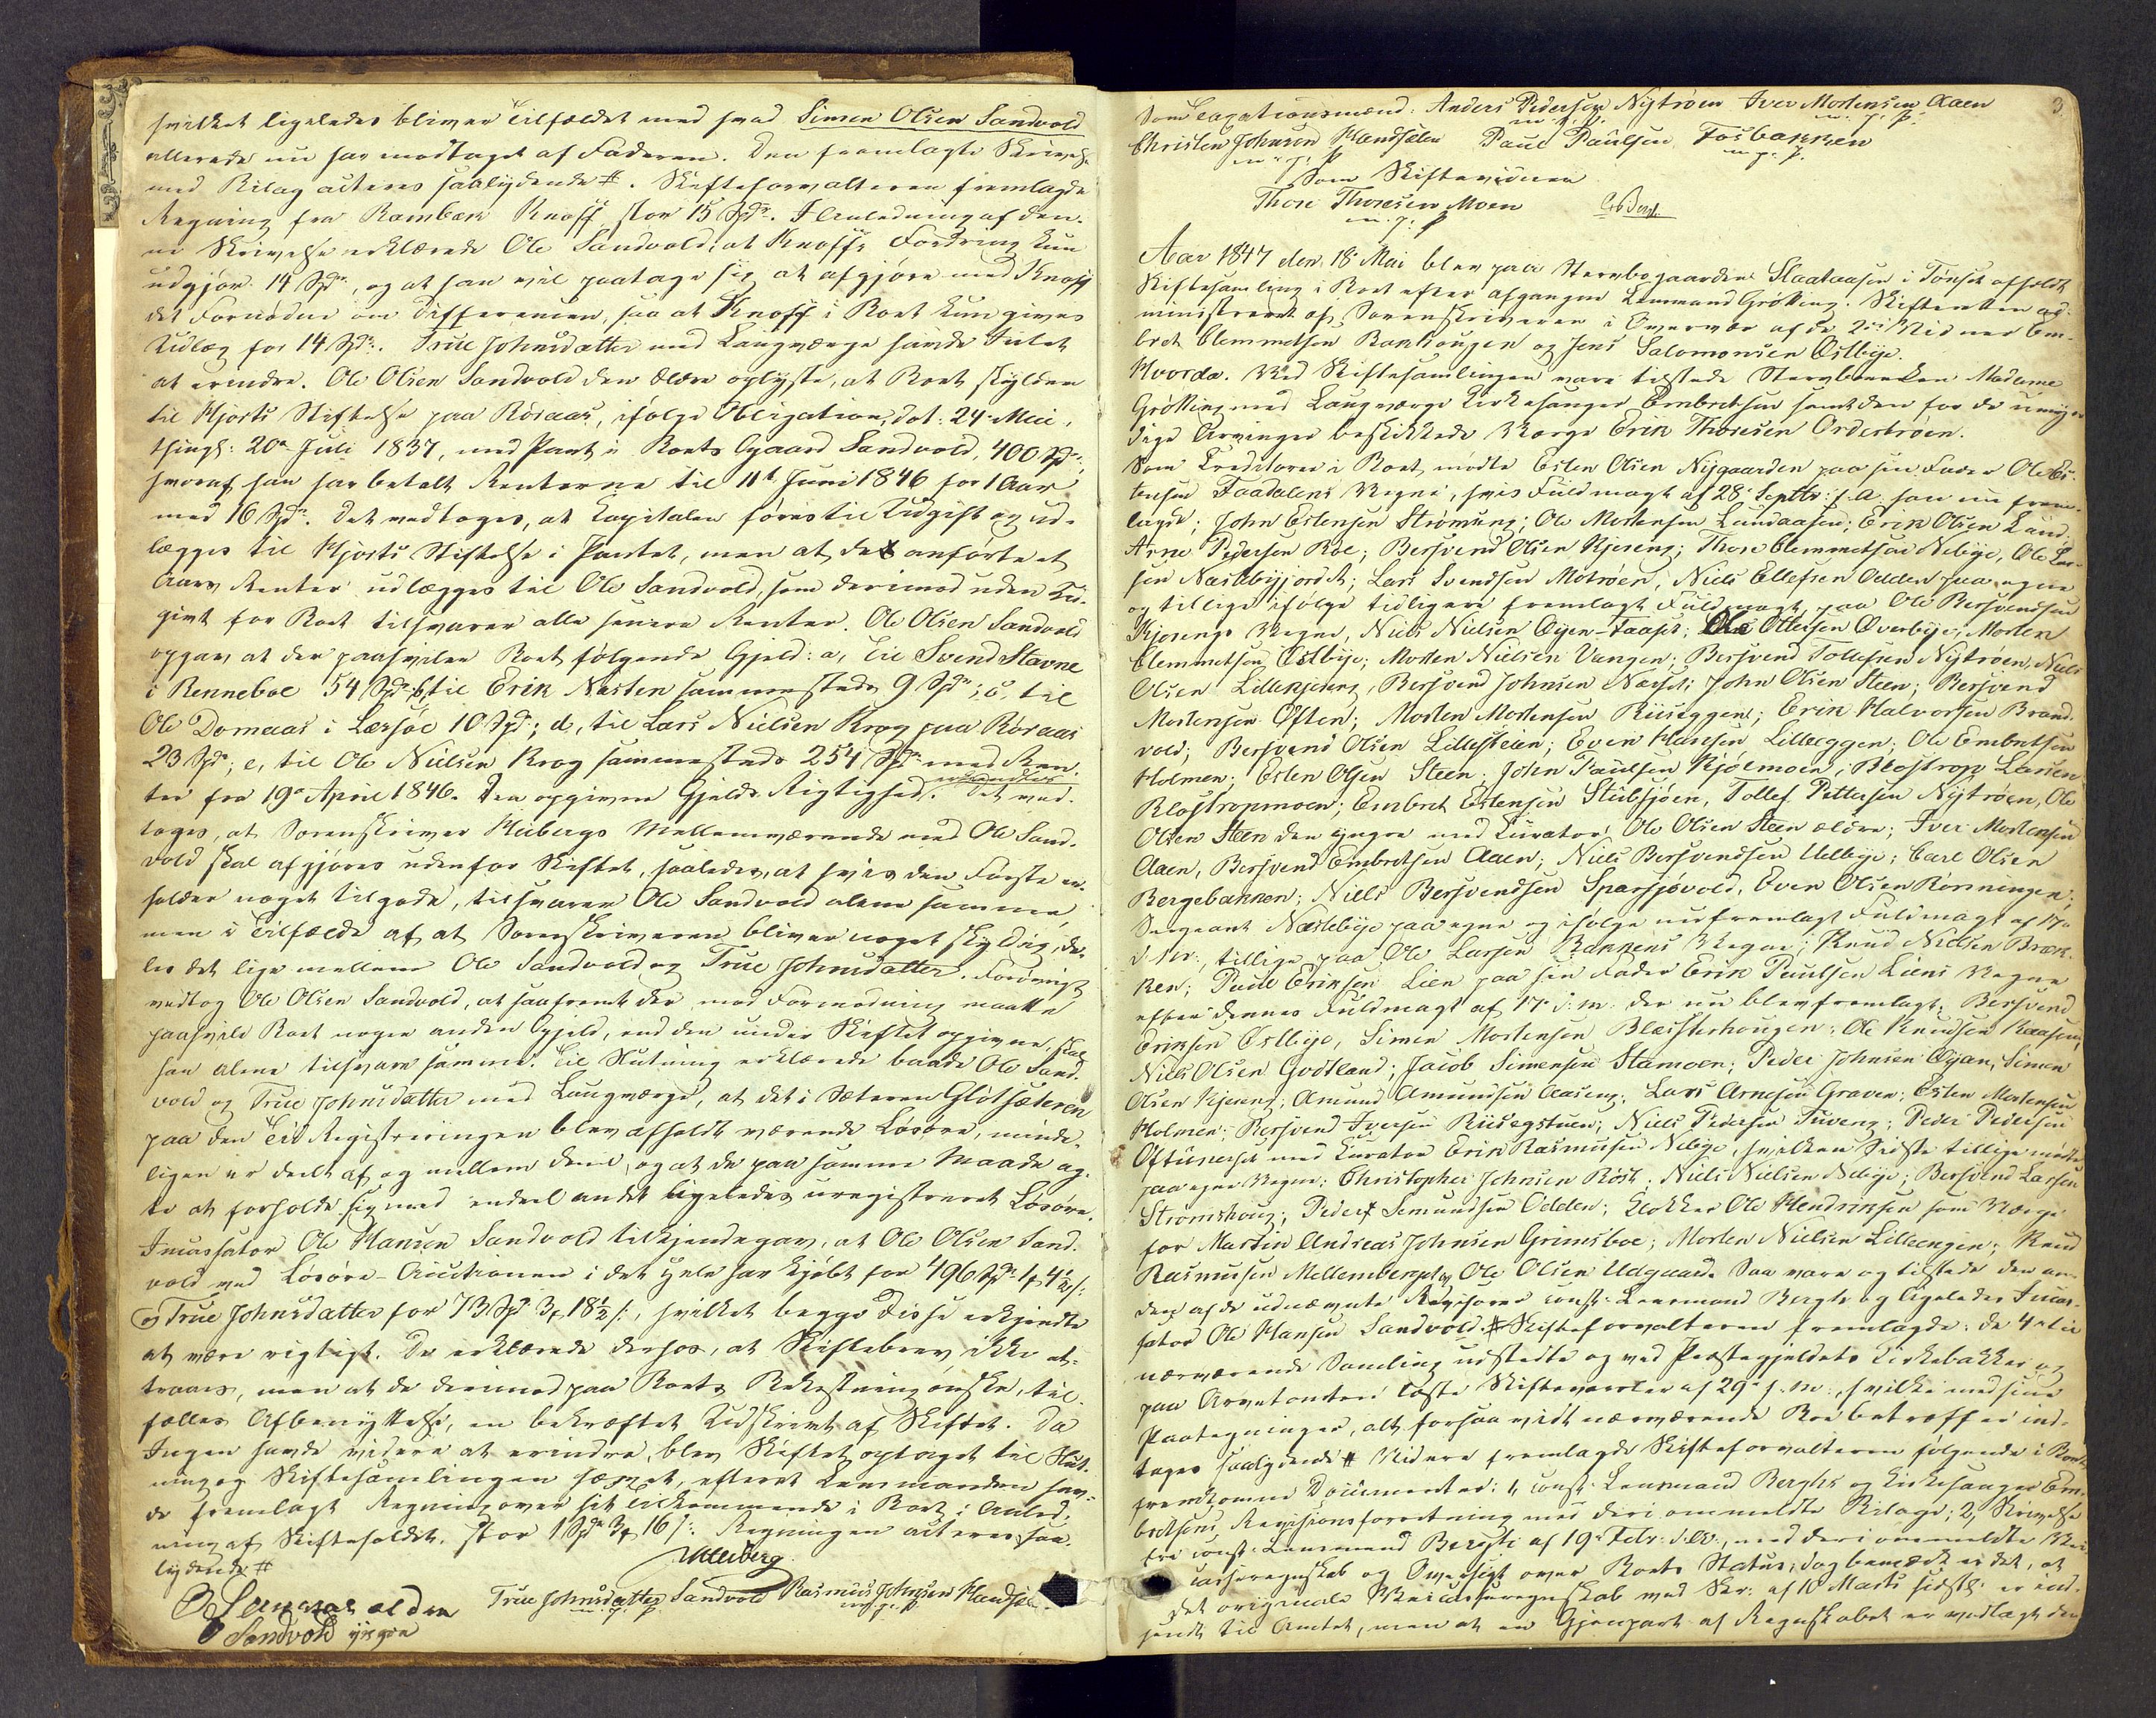 hvilket ligeledes bliver Tilfældet med hvad Simen Olsen Sandvold
allerede nu har modtaget af Faderen. Den fremlagte Skrivelse
med Bilag acteres saalydende #. Skifteforvalteren fremlagde
Regning fra Knoff stor 15 Spd. I Anledning af den-
ne Skrivelse erklærede Ole Sandvold, at Knoffs Fordring kun
udgjør 14 Spd, og at han vil paatage sig at afgjøre med Knoff
det Fornødne om Differencen, saa at Knoff i Boet kun gives
Udlæg for 14 Spd. True Johnsdatter med Laugværge havde Intet
at erindre. Ole Olsen Sandvold den ældre oplyste, at Boet skylder
til Hjorts Stiftelse paa Röraas, ifølge Obligation, dat: 24 Mai,
thingl: 20de Juli 1837, med Pant i Boets Gaard Sandvold, 400 Spd,
hvoraf han har betalt Renterne til 11te Juni 1846 for 1 Aar
med 16 Spd. Det vedtoges, at Capitalen føres til Udgift og ud-
lægges til Hjorts Stiftelse i Pantet, men at det anførte et
Aars Renter udlægges til Ole Sandvold, som derimod uden Ud-
givt for Boet tilsvarer alle senere Renter. Ole Olsen Sandvold
opgav at der paahviler Boet følgende Gjeld: a, til Svend Stavne
i Renneboe 54 Spd; b, til Erik Næsten sammesteds 9 Spd; c, til
Ole Domaas i Læsøe 10 Spd; d, til Lars Nielsen Krog paa Röraas
23 Spd; e, til Ole Nielsen Krog sammesteds 254 Spd med Ren-
ter fra 19de April 1846. Den opgivne Gjelds Rigtighed erkjendtes. Det ved-
toges, at Sorenskriver Mellemværende med Ole Sand-
vold skal afgjøres udenfor Skiftet, saaledes, at hvis den Første er-
holder noget tilgode, tilsvarer Ole Sandvold alene samme,
men i Tilfælde af at Sorenskriveren bliver noget skyldig, de-
les det lige mellem Ole Sandvold og True Johnsdatter. Forøvrigt
vedtog Ole Olsen Sandvold, at saafremt der mod Formodning maatte
paahvile Boet nogen anden Gjeld, end den under Skiftet opgivne, skal
han alene tilsvare samme. Til Slutning erklærede baade Ole Sand-
vold og True Johnsdatter med Laugværge, at det i Sæteren Glötsæteren
paa den Tid Registreringen blev afholdt værende Løsøre, minde-
ligen er deelt af og mellem dem, og at de paa samme Maade ag-
te at forholde sig med endeel andet ligeledes uregistreret Løsøre.
Incassator Ole Hansen Sandvold tilkjendegav, at Ole Olsen Sand-
vold ved Løsøre-Auctionen i det hele har kjøbt for 496 Spd 1 4½ s:
og True Johnsdatter for 73 Spd 3 18½ s:, hvilket begge Disse erkjendte
at være rigtigt. De erklærede derhos, at Skiftebrev ikke at-
traaes, men at de derimod paa Boets Bekostning ønske, til
fælles Afbenyttelse, en bekræftet Udskrivt af Skiftet. Da
Ingen havde videre at erindre, blev Skiftet optaget til Slut-
ning og Skiftesamlingen hævet, efterat Lensmanden hav-
de fremlagt Regning over sit Tilkommende i Boet i Anled-
ning af Skifteholdet, stor 1 Spd 3 16 s:. Regningen acteres saa-
lydende #
Sandvold
yngre
True Johnsdatter Sandvold
m. p. P.
Rasmus Johnsen
m. p. P
3
Som Taxationsmænd: Anders Pedersen Nytrøen Iver Mortensen Aaen
m. p. P. m. p. P.
Christen Johnsen Paul Paulsen Fosbakken
m. p. P m. p. P.
Som Skiftevidner
Thore Thoresen Moen
m. p. P
Aar 1847 den 18 Mai blev paa Stervbogaarden i Tønset afholdt
Skiftesamling i Boet efter afgangne Lensmand Grötting. Skifteretten ad-
ministreret af Sorenskriveren i Overvær af de 2de Vidner Em-
bret Clemmetsen og Jens Salomonsen Östbye.
Hvorda. Ved Skiftesamlingen vare tilstede Stervboenken Madame
Grötting med Laugværge Kirkesanger Embretsen samt den for de umyn-
dige Arvinger beskikkede Værge Erik Thoresen
Som Creditorer i Boet mødte Esten Olsen Nygaarden paa sin Fader Ole Es-
tensen Faadalens Vegne, hvis Fuldmagt af 28 Septbr: f. A. han nu frem-
lagde; John Estensen Strömeng; Ole Mortensen Lundaasen; Erik Olsen Lund;
Arne Pedersen Roe; Bersvend Olsen Kjereng; Thore Clemmetsen Nebye, Ole Lar-
sen Næstebyjordet; Lars Svendsen Motröen, Niels Ellefsen Odden paa egne
og tillige ifølge tidligere fremlagt Fuldmagt paa Ole Bersvendsen
Kjerengs Vegne, Niels Nielsen Øyen-Faaset; Ole Ottersen Overbye; Morten
Clemmetsen Östbye; Morten Nielsen Vangen; Bersvend Tollefsen Nytröen, Niels
Olsen Lillekjereng, Bersvend Johnsen Norset; John Olsen Steen; Bersvend
Mortensen Öften; Morten Mortensen Riiseggen; Erik Halvorsen Brand-
vold; Bersvend Olsen Lillesteien; Even Hansen Lilleeggen; Ole Embretsen
Holmen; Esten Olsen Steen; John Paulsen Kjölmoen; Larsen
Embret Estensen Stubsjöen, Tollef Pettersen Nytröen, Ole
Olsen Steen den yngre med Curator, Ole Olsen Steen ældre; Iver Mortensen
Aaen, Bersvend Embretsen Aaen; Niels Bersvendsen Udbye; Carl Olsen
Bergebakken; Niels Bersvendsen Sparsjövold, Even Olsen Rönningen;
Sergeant Næstebye paa egne og ifølge nu fremlagt Fuldmagt af 17de
d. M:, tillige paa Ole Larsen Bakkens Vegne; Knud Nielsen Bræk-
ken; Paul Eriksen Lien paa sin Fader Erik Paulsen Liens Vegne
efter dennes Fuldmagt af 17 d. M. der nu blev fremlagt; Bersvend
Eriksen Östbye, Simen Mortensen Ole Knudsen Raasen,
Niels Olsen Godtland; Jacob Simensen Stamoen; Peder Johnsen Öyan, Simen
Olsen Kjereng; Amund Amundsen Aaseng; Lars Arnesen Graven; Esten Mortensen
Holmen; Bersvend Iversen Riisegstuen; Niels Pedersen Tuveng; Peder Pedersen
med Curator Erik Rasmussen Nebye, hvilken Sidste tillige mødte
paa egne Vegne; Christopher Johnsen Röst; Niels Nielsen Nebye; Bersvend Larsen
Strömshoug; Peder Semundsen Odden; Klokker Ole Hendriksen som Værge
for Martin Andreas Johnsen Grimsboe; Morten Nielsen Lilleengen; Knud
Rasmussen og Ole Olsen Udgaard. Saa vare og tilstede den an-
den af de udnævnte Revisorer const. Lensmand Bergh og ligeledes Incas-
sator Ole Hansen Sandvold. # Skifteforvalteren fremlagde: de 4 til
nærværende Samling udstedte og ved Præstegjeldets Kirkebakker og
paa Arvetomten læste Skiftevarsler af 29 f. M:, hvilke med sine
Paategninger, alt forsaavidt nærværende Boe betræffer ind-
tages saalydende # Videre fremlagde Skifteforvalteren følgende i Boet
fremkomne Documenter: 1, const. Lensmand Berghs og Kirkesanger Em-
bretsens Revisionsforretning med deri ommeldte Bilage; 2, Skrivelse
fra const. Lensmand Bergh af 19 Febr: d. A., med deri ommeldte
og Oversigt over Boets Status; dog bemærkes det, at
det originale med Skr: af 10 Marts sidstl. er ind-
sendt til Amtet, men at en Gjenpart af Regnskabet er vedlagt den